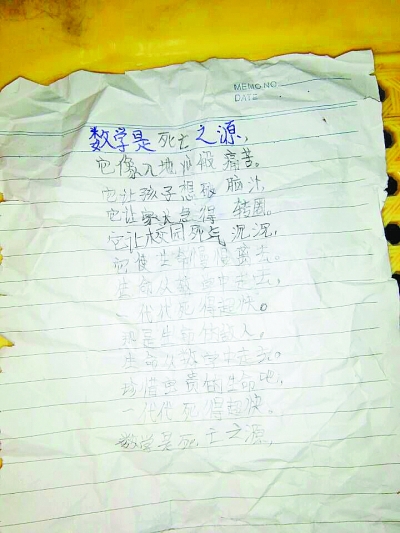 MEMO NO.
DATE
数学是死亡之源,
它像入地狱般痛苦。
它让孩子想破脑汁,
它让家长急得转圈。
它让校园死气沉沉,
它使生命慢慢离去。
生命从数学中走去,
一代代死得超快。
那是生命
生命从数学中走去。
珍惜宝贵的生命吧,
一代代死得超快。
数学是死亡之源,